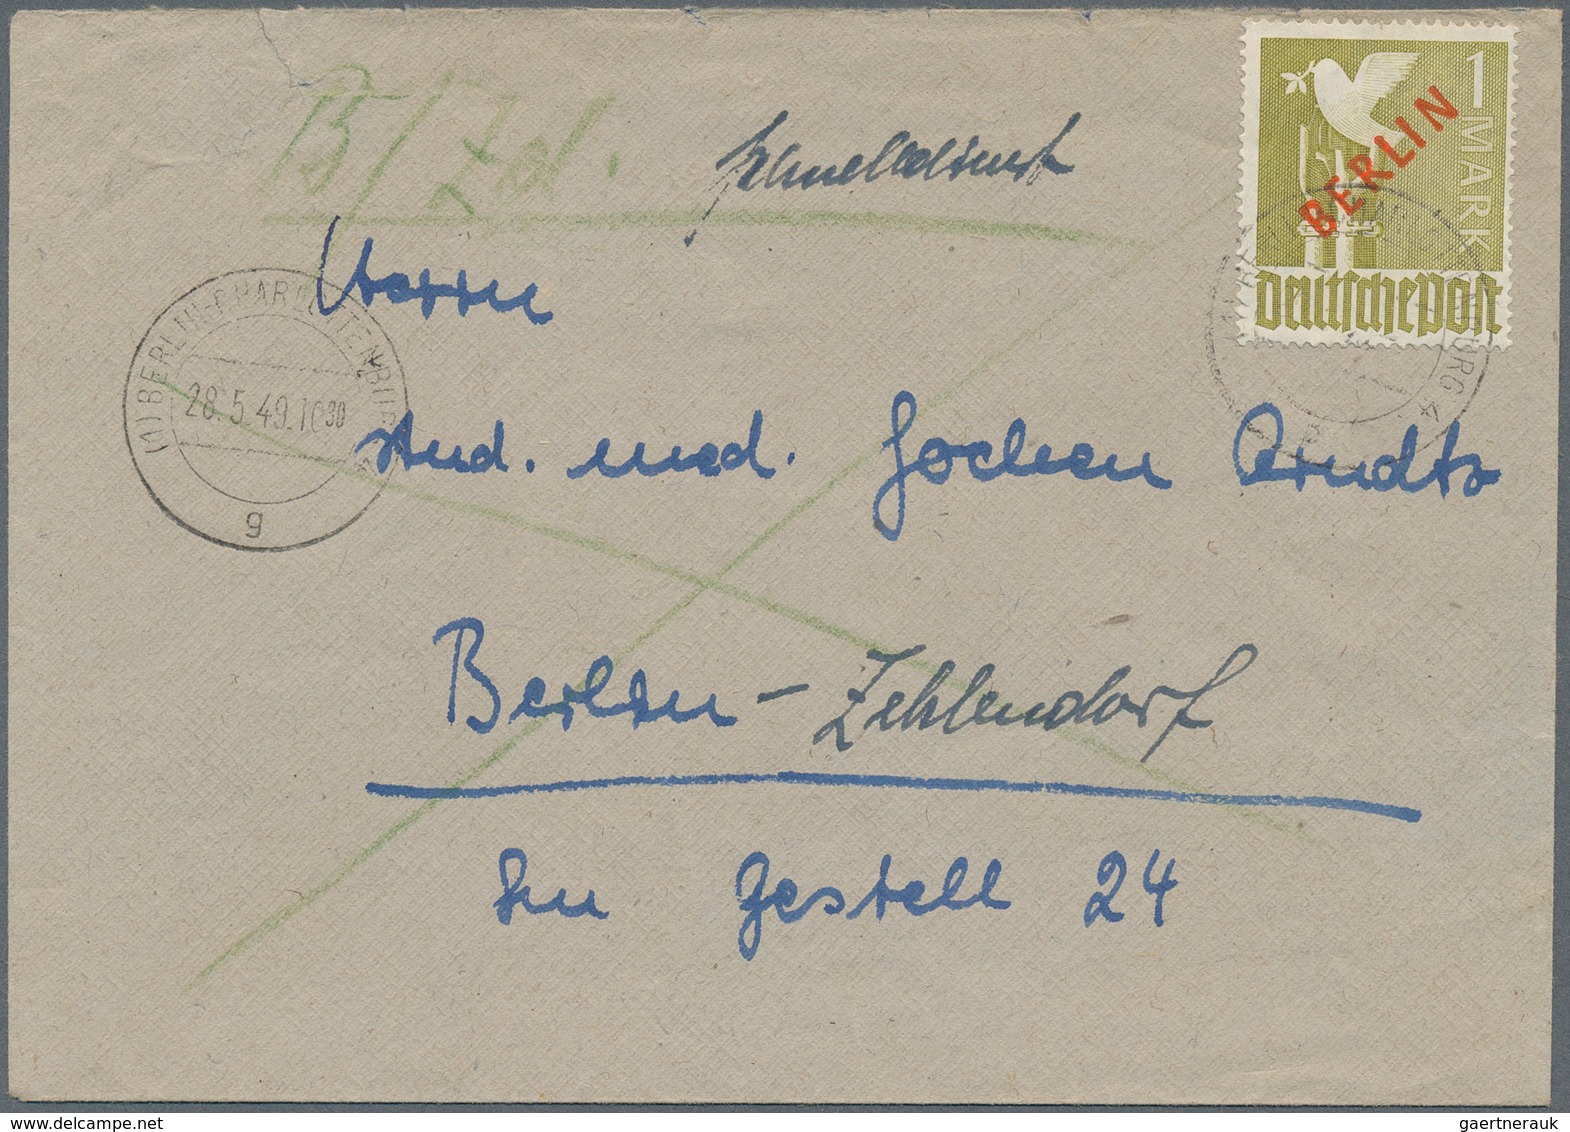 B/Zd.
Schnelldienst
1 MARK
BERLIN
Deutsche Post
Herrn
(1) BERLIN-CHARLOTTENBURG
28.5.49.10 30
g
stud. med. Jochen Arndts
Berlin-Zehlendorf
Im Gestell 24
gaertnerauk
delcampe.net